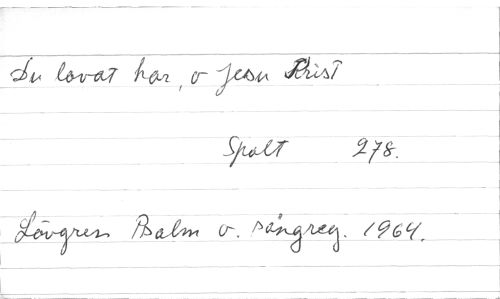 Du lovat har, o Jesu Krist
Spalt 278.
Lövgren Psalm o. sångreg. 1964.